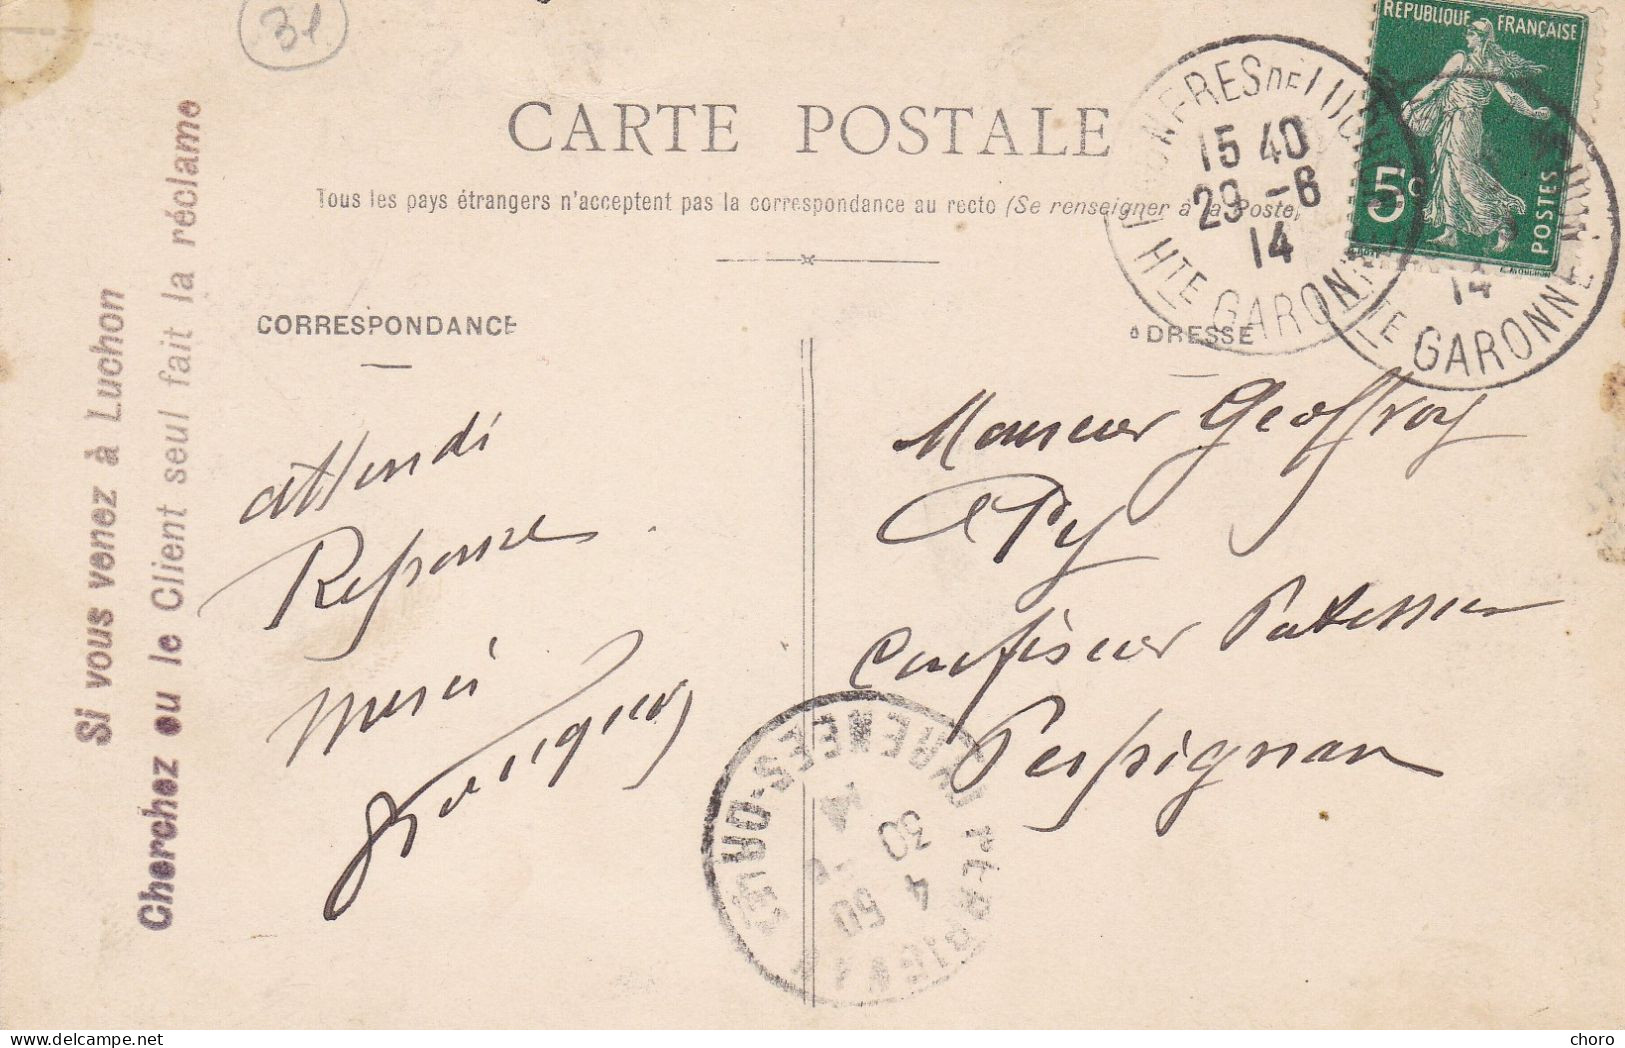 31
RÉPUBLIQUE FRANÇAISE
5c
POSTES
15 40
29 -6
14
HTE GARONNE
14
GARONNE
CARTE POSTALE
Tous les pays étrangers n'acceptent pas la correspondance au recto (Se renseigner à la Poste)
CORRESPONDANCE
ADRESSE
Si vous venez à Luchon
Cherchez ou le Client seul fait la réclame
attendi
Reponse
merci
Monsieur Geoffroy
Py
Confiseur Patissier
Perpignan
PERPIGNAN
PYRENEES-ORles
4 50
30
choro